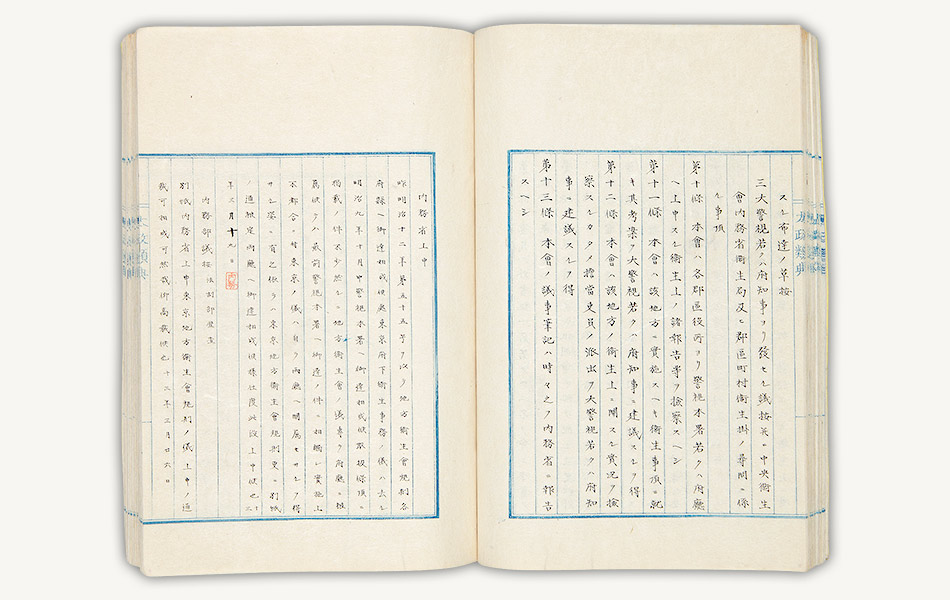 スル布達ノ草按
三大警視若クハ府知事ヨリ發セル議按其ニ中央衞生
會内務省衞生局及ヒ郡區町村衞生掛ノ尋問ニ係
ル事項
第十條 本會ハ各郡區役所ヨリ警視本署若クハ府廳
ヘ上申スル衞生上ノ諸報告等ヲ撿察スヘシ
第十一條 本會ハ該地方ニ實施スヘキ衞生事項ニ就
キ其考案ヲ大警視若クハ府知事ニ建議スルヲ得
第十二條 本會ハ該地方ノ衞生上ニ関スル實况ヲ撿
察スルカタメ擔當吏員ノ派出ヲ大警視若クハ府知
事ニ建議スルヲ得
第十三條 本會ノ議事筆記ハ時々之ヲ内務省ニ報告
スヘシ
内務省上申
昨明治十二年第五十五号ヲ以テ地方衞生會規則各
府縣ヘ御達相成候處東京府下衞生事務ノ儀ハ去ル
明治九年十月中警視本署ヘ御達相成候取扱條項ニ
揭載ノ件不少然ルニ地方衞生會ノ儀専ラ府廳ニ
属候テハ最前警視本署ヘ御達ノ件ニ相觸レ實施上
不都合ニ付東京ノ儀ハ自ラ両廳ヘ関属セサルヲ得
サル姿ニ有之依テハ東京地方衞生會規則更ニ別紙
ノ通被定両廳ヘ御達相成候様仕度此段上申候也
年三月十九日
内務部議按 法制部査
別紙内務省上申東京地方衞生會規則ノ儀上申ノ通
裁可相成可然哉仰高裁候也 十三年三月日六日
太政類典